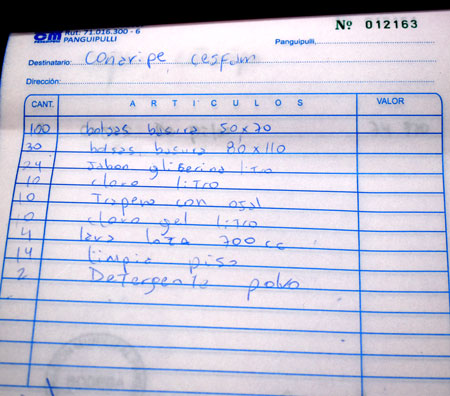 om RUT: 71.016.300 - 6
PANGUIPULLI
Nº 012163
Panguipulli,
Destinatario: Coñaripe cesfam
Dirección:
CANT. ARTICULOS VALOR
100 bolsas basura 50x70
30 bolsas basura 80x110
24 Jabon glicerina litro
10 cloro litro
10 Trapero con ojal
10 cloro gel litro
4 lava loza 700 cc
14 limpia piso
2 Detergente polvo